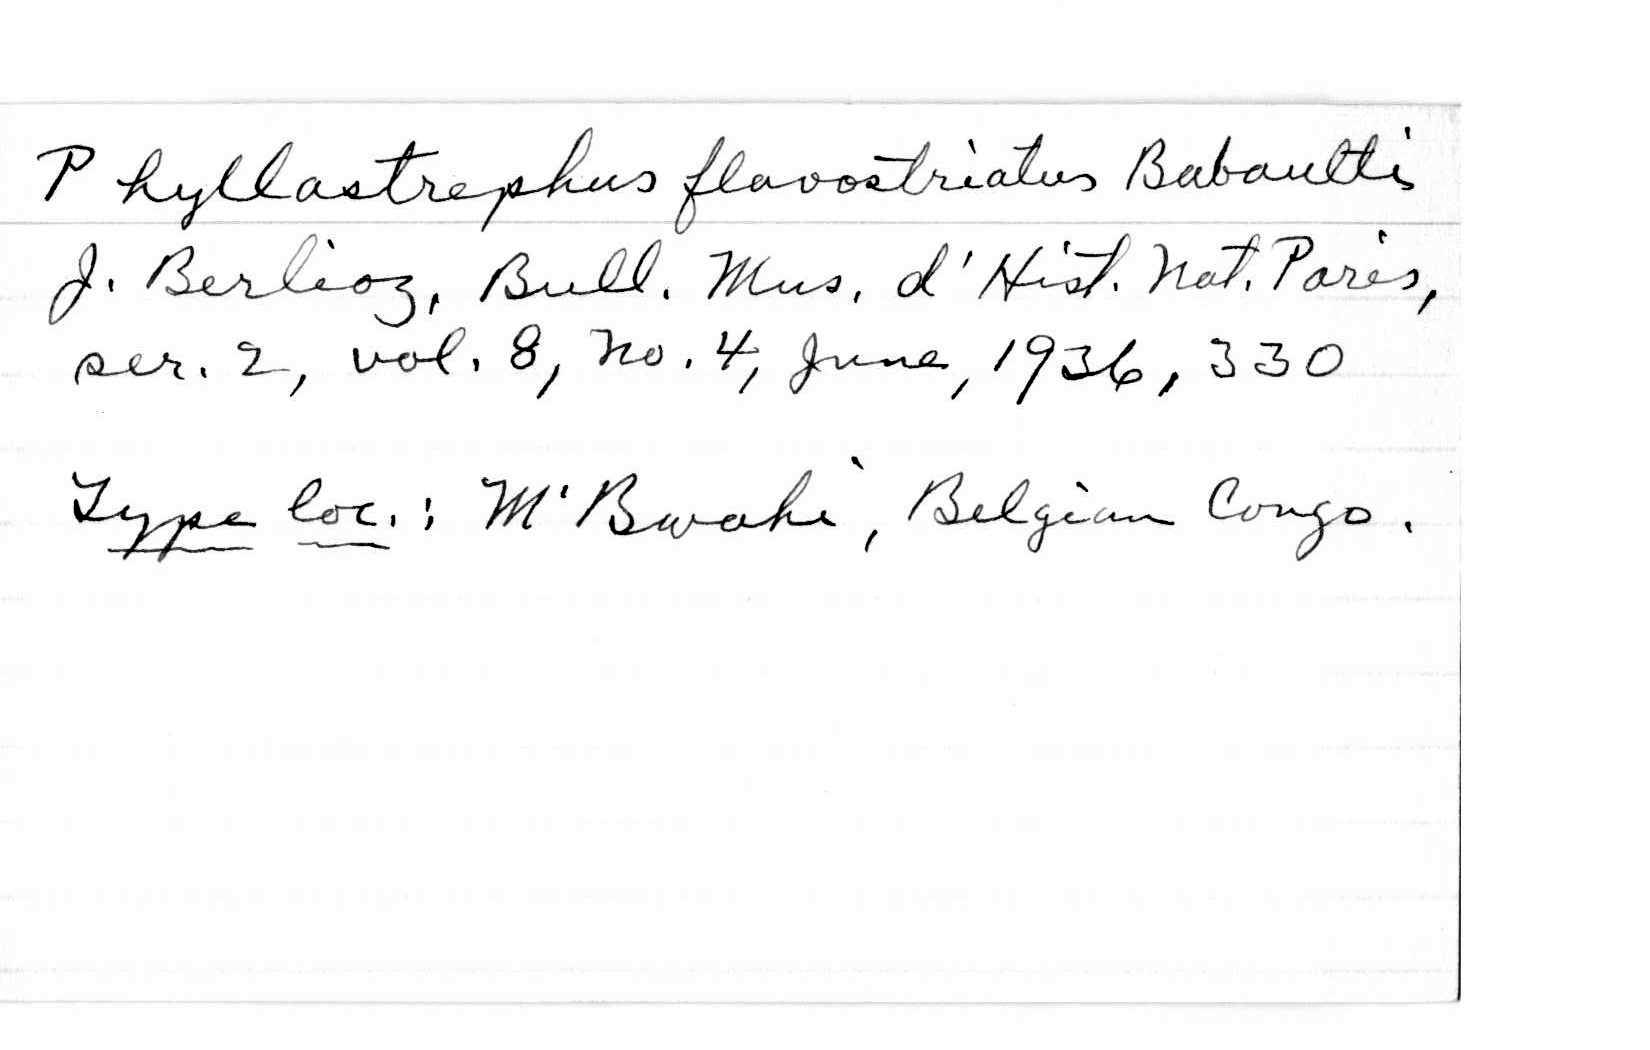 Phyllastrephus flavostriatus Babaulti
J. Berlioz, Bull. Mus. d'Hist. Nat. Paris,
ser. 2, vol. 8, no. 4, June, 1936, 330
Type loc.: M'Bwahi, Belgian Congo.